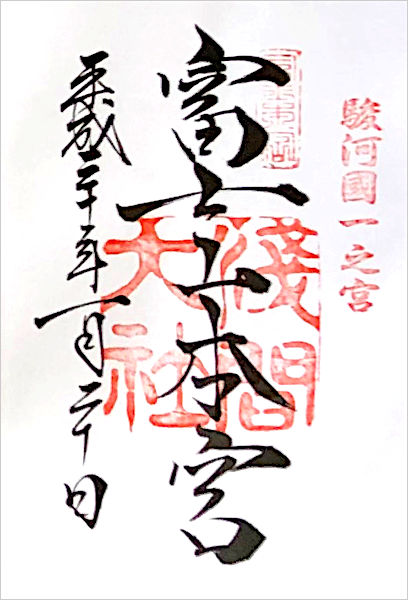 駿河國一之宮
富士山本宮
淺間
大社
平成二十年一月二十日